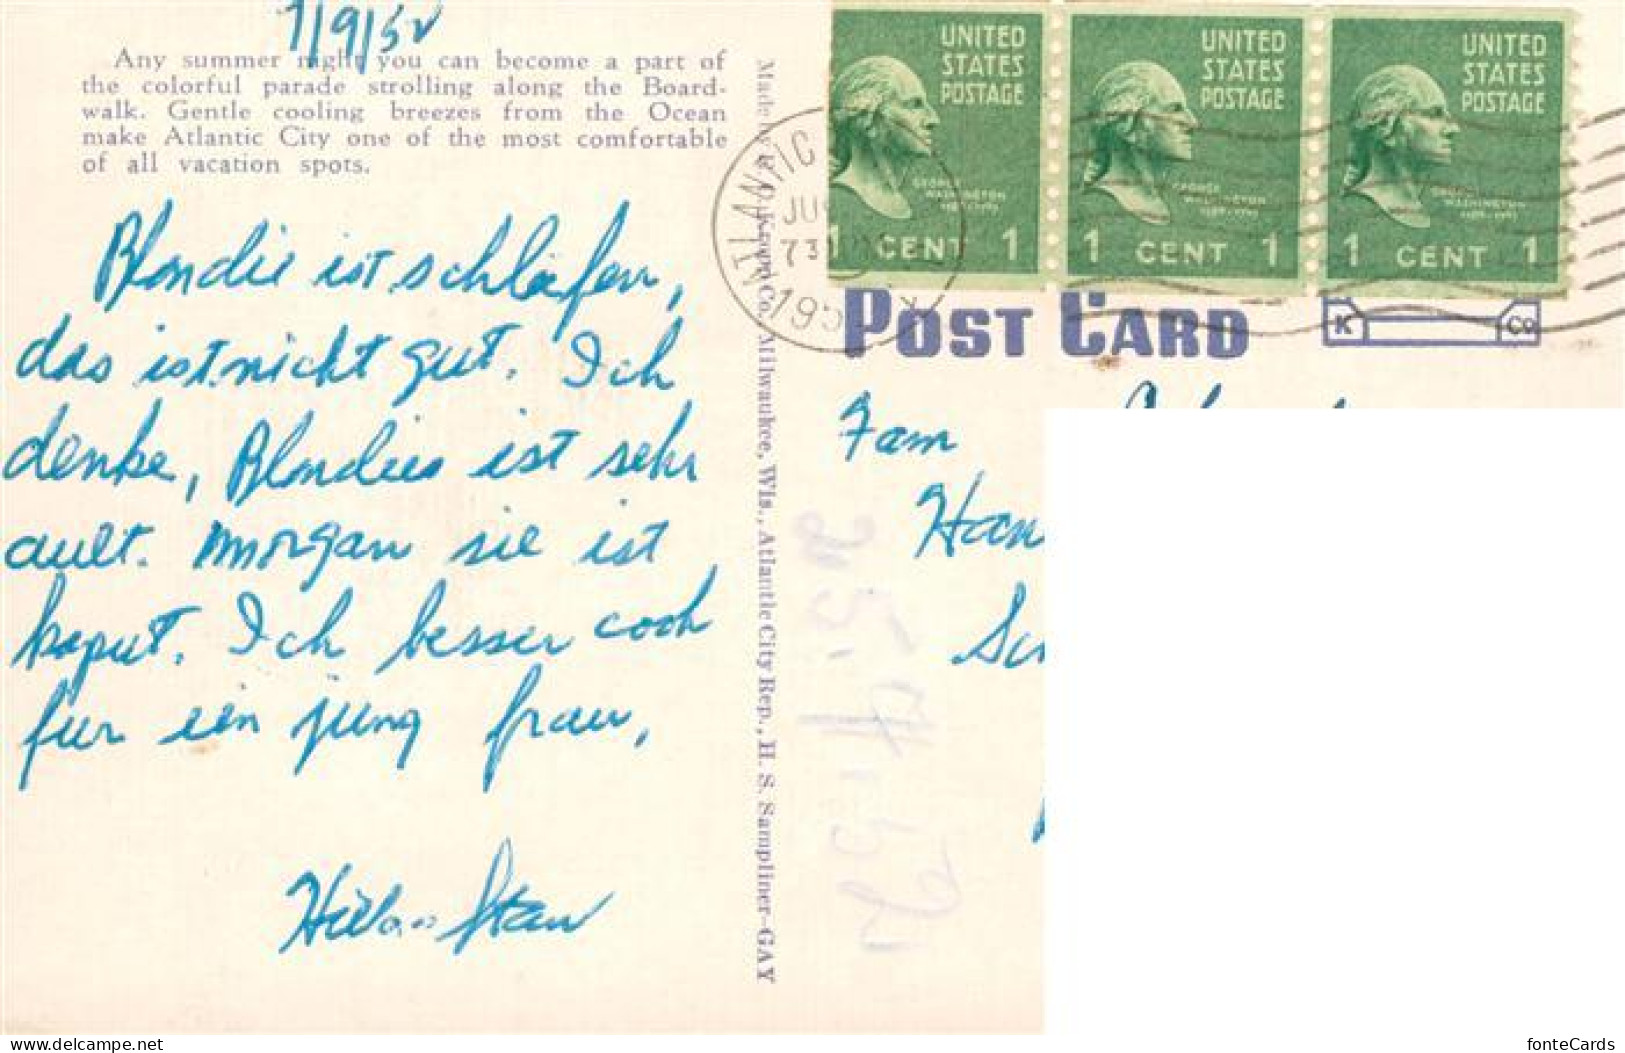 7/9/52
Any summer night you can become a part of
the colorful parade strolling along the Board-
walk. Gentle cooling breezes from the Ocean
make Atlantic City one of the most comfortable
of all vacation spots.
Blondie ist schläfen,
das ist nicht gut. Ich
denke, Blondies ist sehr
ault. morgan sie ist
kaput. Ich besser cook
für ein jung frau,
Stan
Made by E. C. Kropp Co., Milwaukee, Wis., Atlantic City Rep., H. S. Sampliner-GAY
ATLANTIC
195
UNITED
STATES
POSTAGE
GEORGE
WASHINGTON
1 CENT 1
UNITED
STATES
POSTAGE
GEORGE
WASHINGTON
1 CENT 1
UNITED
STATES
POSTAGE
GEORGE
WASHINGTON
1 CENT 1
POST CARD
K Co
Fam
Han
delcampe.net
fonteCards